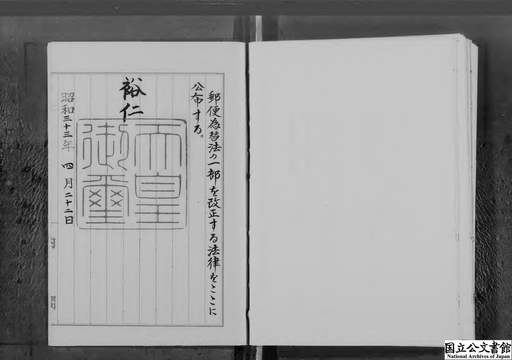 郵便為替法の一部を改正する法律をここに
公布する。
裕仁
天皇
御璽
昭和三十三年四月二十二日
国立公文書館
National Archives of Japan